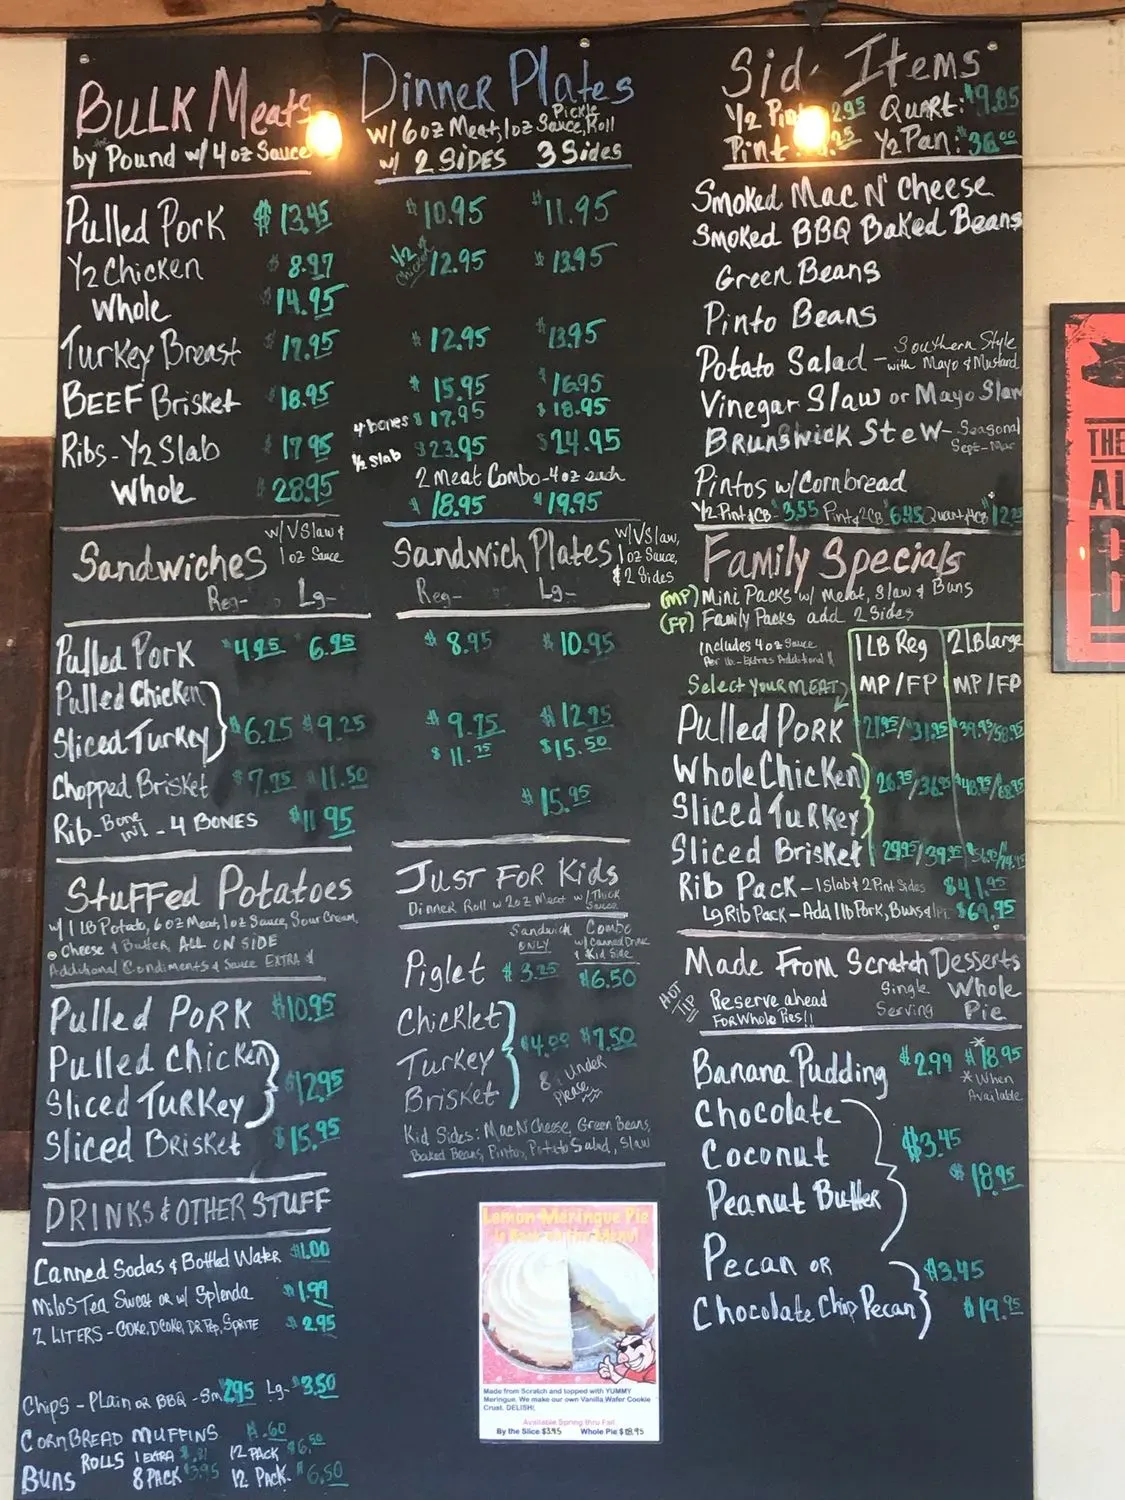 BULK Meats
by Pound w/ 4 oz Sauce
Pulled Pork $13.45
1/2 Chicken $8.97
Whole 14.95
Turkey Breast 17.95
BEEF Brisket $18.95
Ribs - 1/2 Slab 17.95
Whole 28.95
Dinner Plates
w/ 6 oz Meat, 1 oz Sauce, Pickle, Roll
w/ 2 SIDES 3 Sides
$10.95 $11.95
1/2 Chicken $12.95 $13.95
$12.95 $13.95
$15.95 $16.95
4 bones $17.95 $18.95
1/2 Slab $23.95 $24.95
2 Meat Combo - 4 oz each
$18.95 $19.95
Items
1/2 Pint 2.95 QUART: $9.85
Pint 1/2 Pan: $36.00
Smoked Mac N' Cheese
Smoked BBQ Baked Beans
Green Beans
Pinto Beans
Potato Salad - Southern Style with Mayo & Mustard
Vinegar Slaw or Mayo Slaw
BRUNSWICK STEW - Seasonal Sept-Mar
Pintos w/ Cornbread
1/2 Pint & CB - $3.55 Pint & 2CB $6.45 Quart & 4CB
Sandwiches w/ V Slaw & 1 oz Sauce
Reg- Lg-
Pulled Pork $4.25 6.95
Pulled Chicken
Sliced Turkey $6.25 $9.25
Chopped Brisket $7.75 $11.50
Rib - Bone IN! - 4 BONES $11.95
Sandwich Plates w/ V Slaw, 1 oz Sauce, & 2 Sides
Reg- Lg-
$8.95 $10.95
$9.75 $12.75
$11.75 $15.50
$15.95
Family Specials
(MP) Mini Packs w/ Meat, Slaw & Buns
(FP) Family Packs add 2 Sides
Includes 4 oz Sauce Per lb. - Extras Additional $
1 LB Reg 2 LB Large
Select your MEAT MP/FP MP/FP
Pulled PORK 21.95/31.95 $39.95/58.95
Whole Chicken
Sliced Turkey 26.95/36.95 $48.95/68.95
Sliced Brisket 29.95/39.95
Rib Pack - 1 Slab & 2 Pint Sides $41.95
Lg Rib Pack - Add 1 lb Pork, Buns & 1 Pt $69.95
Stuffed Potatoes
w/ 1 LB Potato, 6 oz Meat, 1 oz Sauce, Sour Cream,
Cheese & Butter ALL ON SIDE
Additional Condiments & Sauce EXTRA $
Pulled PORK $10.95
Pulled Chicken
Sliced Turkey $12.95
Sliced Brisket $15.95
JUST FOR Kids
Dinner Roll w 2 oz Meat w/ Thick Sauce
Sandwich ONLY Combo w/ Canned Drink & Kid Side
Piglet $3.25 $6.50
Chicklet
Turkey $4.00 $7.50
Brisket
8 & Under Please
Kid Sides: Mac N Cheese, Green Beans,
Baked Beans, Pintos, Potato Salad, Slaw
Made From Scratch Desserts
HOT TIP!!
Reserve ahead FOR Whole Pies!!
Single Serving Whole Pie
Banana Pudding $2.99 *$18.95
*When Available
Chocolate
Coconut $3.45 $18.95
Peanut Butter
Pecan OR $3.45
Chocolate Chip Pecan $19.95
DRINKS & OTHER STUFF
Canned Sodas & Bottled Water $1.00
Milo's Tea Sweet or w/ Splenda $1.99
2 LITERS - COKE, D COKE, DR PEP, SPRITE $2.95
Chips - Plain or BBQ - Sm 2.95 Lg - $3.50
CORNBREAD MUFFINS $.60
ROLLS 1 EXTRA 12 PACK $6.50
Buns 8 PACK $3.95 12 Pack $6.50
Lemon Meringue Pie
is Back on the Menu!
Made from Scratch and topped with YUMMY
Meringue. We make our own Vanilla Wafer Cookie
Crust. DELISH!
Available Spring thru Fall
By the Slice $3.45 Whole Pie $18.95
THE
AL
B